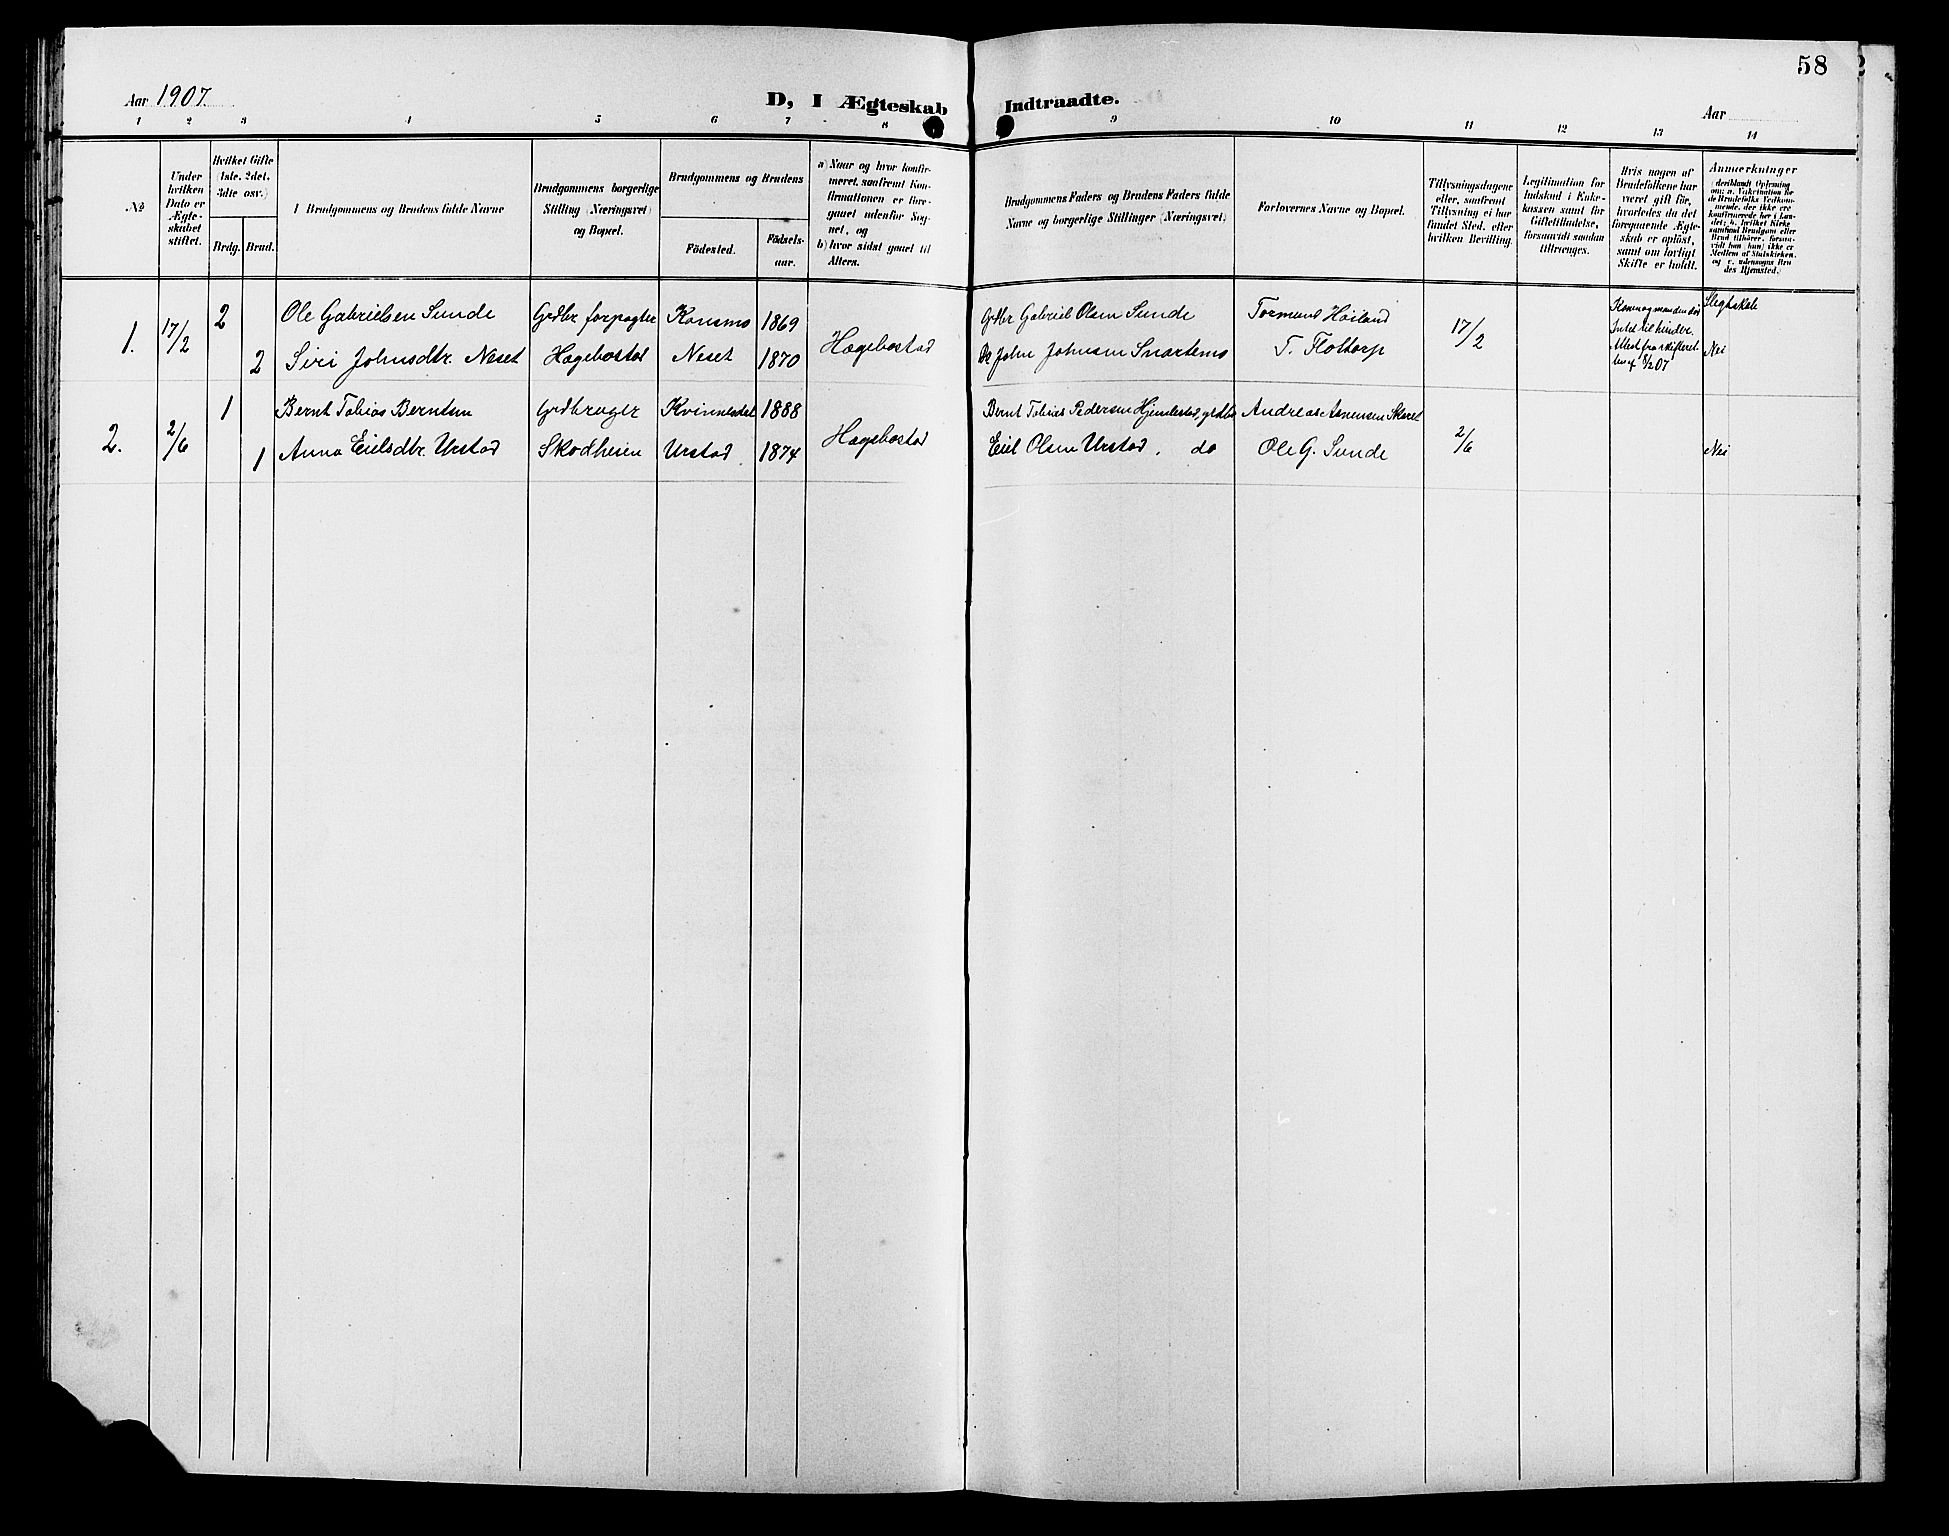 58
Aar 1907.
D, I Ægteskab Indtraadte.
Aar
1 2 3 4 5 6 7 8 9 10 11 12 13 14
№
Under
hvilken
Dato er
Ægte-
skabet
stiftet.
Hvilket Gifte
(1ste, 2det,
3die osv.)
Brdg. Brud.
Brudgommens og Brudens fulde Navne
Brudgommens borgerlige
Stilling (Næringsvei)
og Bopæl.
Brudgommens og Brudens
Födested.
Födsels-
aar.
a) Naar og hvor konfir-
meret, saafremt Kon-
firmationen er fore-
gaaet udenfor Sog-
net, og
b) hvor sidst gaaet til
Alters.
Brudgommens Faders og Brudens Faders fulde
Navne og borgerlige Stillinger (Næringsvei).
Forlovernes Navne og Bopæl.
Tillysningsdagene
eller, saafremt
Tillysning ei har
fundet Sted, efter
hvilken Bevilling.
Legitimation for
Indskud i Enke-
kassen samt for
Giftetilladelse,
forsaavidt saadan
tiltrænges.
Hvis nogen af
Brudefolkene har
været gift för,
hvorledes da det
foregaaende Ægte-
skab er oplöst,
samt om lovligt
Skifte er holdt.
Anmærkninger
1. 17/2 2 Ole Gabrielsen Sunde Grdbr forpagter Konsmo 1869
2 Siri Johnsdtr. Neset Hægebostad Neset 1870 Hægebostad
Grdbr Gabriel Olsen Sunde
Do John Johnsen Snartemo
Tormund Høiland
T. Flottorp
17/2
Kone og manden død
Intet til hinder.
Attest fra skifteret
Slegtskab
Nei
2. 2/6 1 Bernt Tobias Berntsen Grdbruger Kvinnesdal 1888
1 Anna Eielsdtr. Urstad Skodheien Urstad 1874 Hægebostad
Bernt Tobias Pedersen Hjemlestad, grdbr
Eiel Olsen Urstad. do
Andreas Asmunsen Skaret
Ole G. Sunde
2/6
Nei